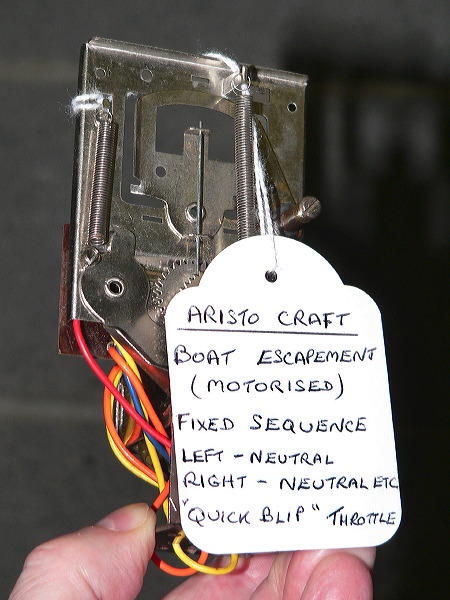 ARISTO CRAFT
BOAT ESCAPEMENT
(MOTORISED)
FIXED SEQUENCE
LEFT - NEUTRAL
RIGHT - NEUTRAL ETC
"QUICK BLIP" THROTTLE